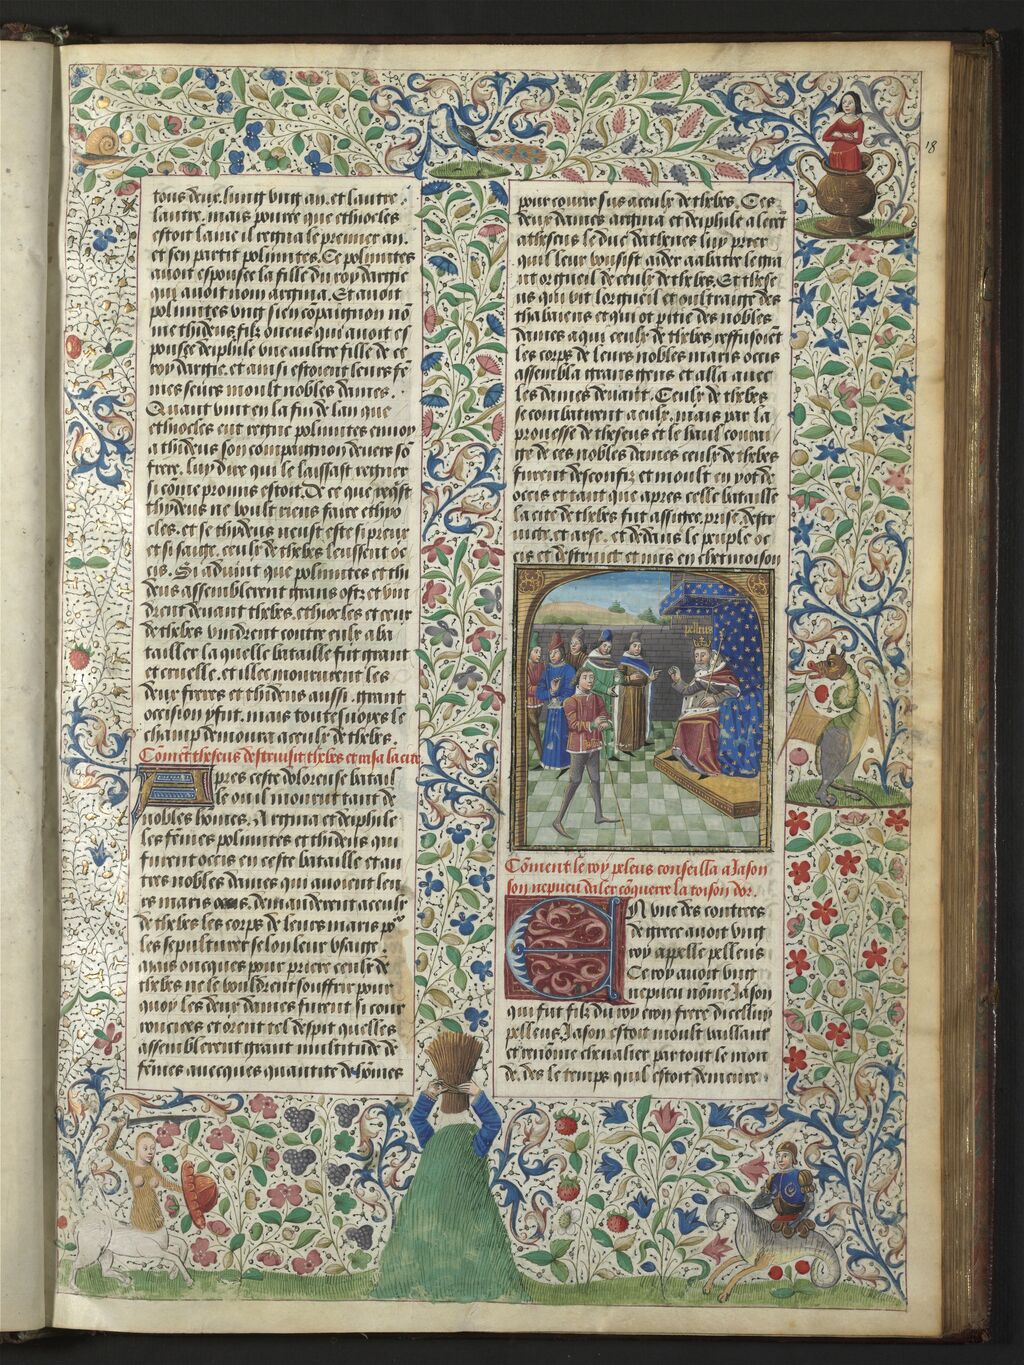 18
tous deux lung ung an. et lautre
lautre. mais pource que ethiocles
estoit laine il regna le premier an.
et sen partit polimites. Ce polimites
auoit espousee la fille du roy dargie
qui auoit nom argina. Et auoit
polimites ung sien copaignon nō
me thideus filz oneus qui auoit es
pousee deiphile une aultre fille de ce
roy dargie. et ainsi estoient leurs fē
mes seurs moult nobles dames.
Quant vint en la fin de lan que
ethiocles eut regne polimites enuoy
a thideus son compaignon deuers sō
frere. luy dire que le laissast regner
si cōme promis estoit. De ce que reqst
thideus ne voult riens faire ethyo
cles. et se thydeus neust este si preux
et si saige. ceulx de thebes leussent oc
cis. Si aduint que polimites et thi
deus assemblerent grans ost. et vin
drent deuant thebes. ethiocles et ceux
de thebes vindrent contre eulx a ba
tailler. laquelle bataille fut grant
et cruelle. et illec moururent les
deux freres et thideus aussi. grant
occision y fut. mais toutesuoyes le
champ demoura a ceulx de thebes.
Cōmēt theseus destruisit thebes et arsa la cite.
Apres ceste doloreuse batail
le ou il mourut tant de
nobles hōmes. Argina et deiphile
les fēmes polimites et thideus qui
furent occis en ceste bataille et au
tres nobles dames qui auoient leu
rs maris demanderent a ceulx
de thebes les corps de leurs maris po
les sepulturer selon leur usaige.
Mais oncques pour priere ceulx de
thebes ne le vouldrent souffrir pour
quoy les deux dames furent si cour
roucees et orent tel despit quelles
assemblerent grant multitude de
fēmes auecques quantite de hōmes
pour courir sus a ceulx de thebes. Ces
deux dames argina et deiphile alerēt
a theseus le duc dathenes luy prier
quil leur voulsist aider a abatre le gra
nt orgueil de ceulx de thebes. Et these
us qui vit lorgueil et oultraige des
thabiens et qui ot pitie des nobles
dames a qui ceulx de thebes reffusoiēt
les corps de leurs nobles maris occis
assembla grans gens et alla auec
les dames deuant. Ceulx de thebes
se combatirent a eulx. mais par la
prouesse de theseus et le hault courai
ge de ces nobles dames ceulx de thebes
furent desconfiz et moult en y ot de
occis et tant que apres celle bataille
la cite de thebes fut assiegee. prise. destr
uicte. et arse. et dedens le peuple oc
cis et destruict et mis en chetiuoison
pelleus
Cōment le roy peleus conseilla a Jason
son nepueu daler cōquerre la toison dor.
En une des contrees
de grece auoit ung
roy appelle pelleus
Ce roy auoit ung
nepueu nōme Jason
qui fut filz du roy eson frere dicelluy
pelleus. Jason estoit moult vaillant
et renōme cheualier par tout le mon
de. des le temps quil estoit demeure